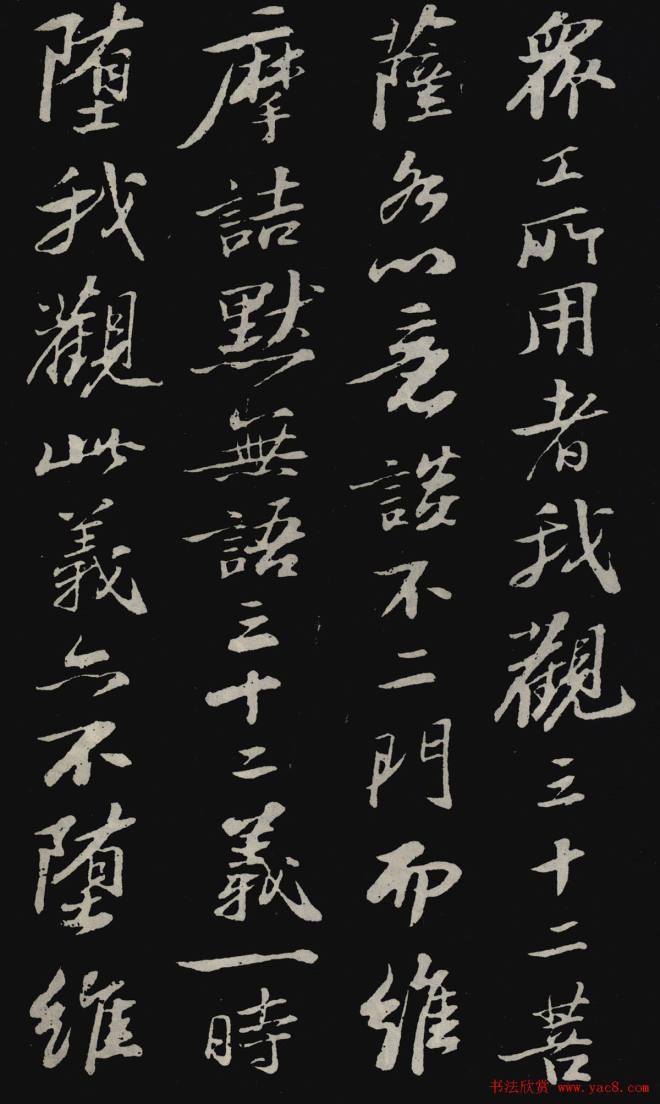 眾工所用者我觀三十二菩
薩各以意談不二門而維
摩詰默無語三十二義一時
墮我觀此義亦不墮維
书法欣赏 www.yac8.com